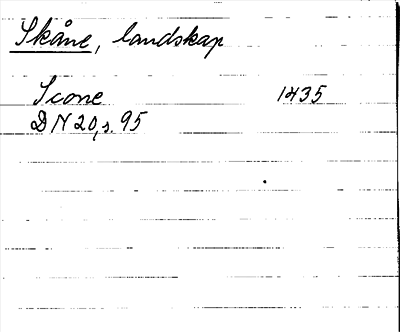 Skåne, landskap
Scone 1435
DN 20, s. 95